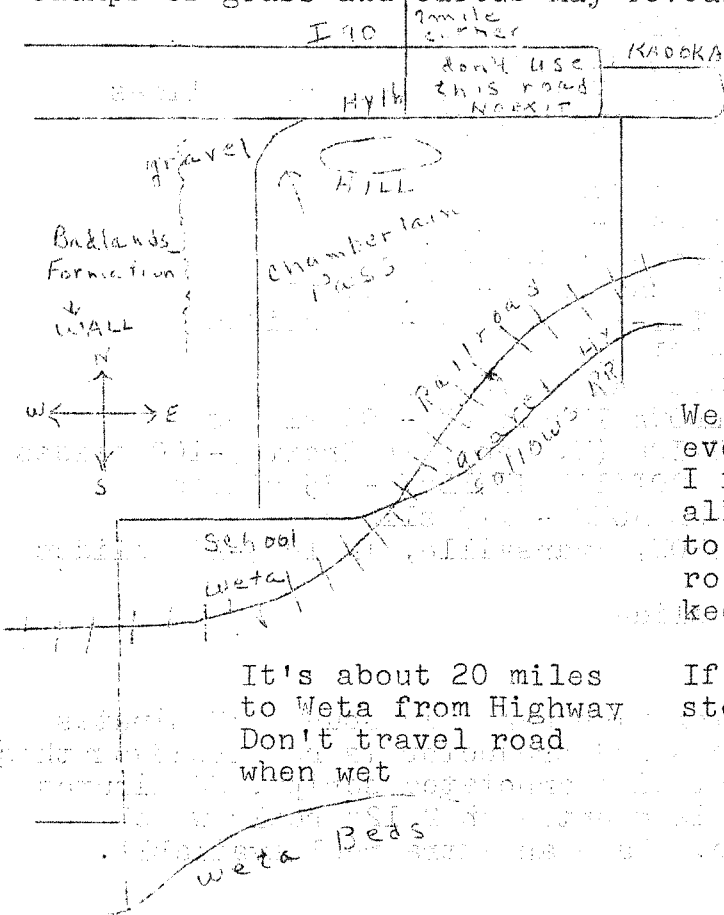 I 90
mile
either
KADOKA
don't use
this road
NO EXIT
Hy 16
gravel
HILL
Chamberlain
Pass
Badlands
Formation
WALL
N
W E
S
Railroad
gravel Hy
follows RR
We
eve
I
al
to
ro
kee
School
Weta
It's about 20 miles
to Weta from Highway
Don't travel road
when wet
If
sto
Weta Beds